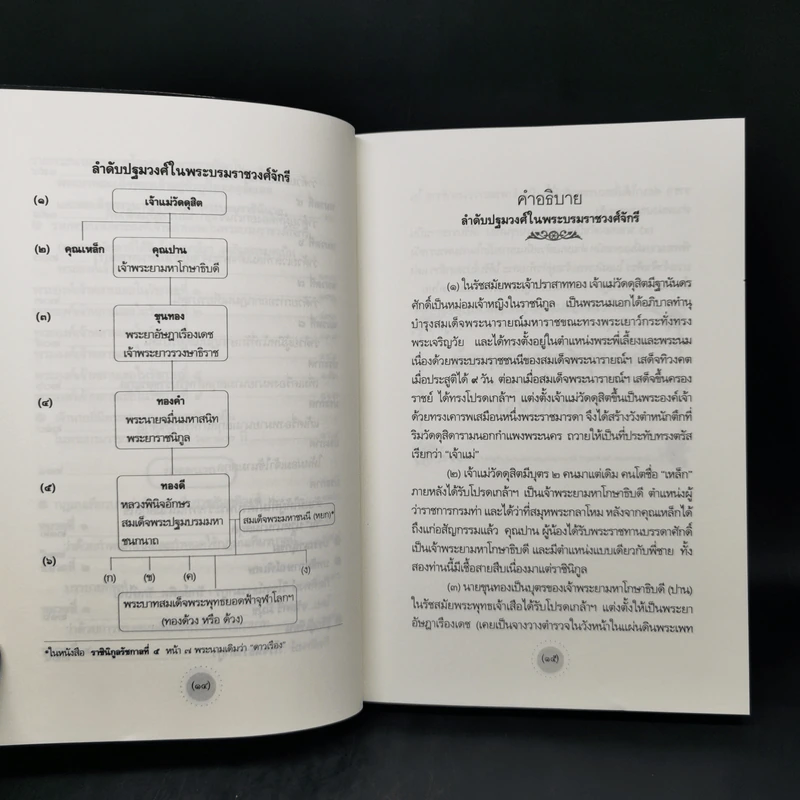 ลำดับปฐมวงศ์ในพระบรมราชวงศ์จักรี
(๑)
เจ้าแม่วัดดุสิต
(๒)
คุณเหล็ก
คุณปาน
เจ้าพระยามหาโกษาธิบดี
(๓)
ขุนทอง
พระยาอัษฎาเรืองเดช
เจ้าพระยาวรวงษาธิราช
(๔)
ทองคำ
พระนายจมื่นมหาสนิท
พระยาราชนิกูล
(๕)
ทองดี
หลวงพินิจอักษร
สมเด็จพระปฐมบรมมหา
ชนกนาถ
สมเด็จพระมหาชนนี (หยก)*
(๖)
(ก)
(ข)
(ค)
(ง)
พระบาทสมเด็จพระพุทธยอดฟ้าจุฬาโลกฯ
(ทองด้วง หรือ ด้วง)
*ในหนังสือ ราชินิกูลรัชกาลที่ ๕ หน้า ๗ พระนามเดิมว่า "ดาวเรือง"
(๑๔)
คำอธิบาย
ลำดับปฐมวงศ์ในพระบรมราชวงศ์จักรี
(๑) ในรัชสมัยพระเจ้าปราสาททอง เจ้าแม่วัดดุสิตมีฐานันดร
ศักดิ์เป็นหม่อมเจ้าหญิงในราชนิกูล เป็นพระนมเอกได้อภิบาลทำนุ
บำรุงสมเด็จพระนารายณ์มหาราชขณะทรงพระเยาว์กระทั่งทรง
พระเจริญวัย และได้ทรงตั้งอยู่ในตำแหน่งพระพี่เลี้ยงและพระนม
เนื่องด้วยพระบรมราชชนนีของสมเด็จพระนารายณ์ฯ เสด็จทิวงคต
เมื่อประสูติได้ ๙ วัน ต่อมาเมื่อสมเด็จพระนารายณ์ฯ เสด็จขึ้นครอง
ราชย์ ได้ทรงโปรดเกล้าฯ แต่งตั้งเจ้าแม่วัดดุสิตขึ้นเป็นพระองค์เจ้า
ด้วยทรงเคารพเสมือนหนึ่งพระราชมารดา จึงได้สร้างวังตำหนักตึกที่
ริมวัดดุสิดารามนอกกำแพงพระนคร ถวายให้เป็นที่ประทับทรงตรัส
เรียกว่า "เจ้าแม่"
(๒) เจ้าแม่วัดดุสิตมีบุตร ๒ คนมาแต่เดิม คนโตชื่อ "เหล็ก"
ภายหลังได้รับโปรดเกล้าฯ เป็นเจ้าพระยามหาโกษาธิบดี ตำแหน่งผู้
ว่าราชการกรมท่า และได้ว่าที่สมุหพระกลาโหม หลังจากคุณเหล็กได้
ถึงแก่อสัญกรรมแล้ว คุณปาน ผู้น้องได้รับพระราชทานบรรดาศักดิ์
เป็นเจ้าพระยามหาโกษาธิบดี และมีตำแหน่งแบบเดียวกับพี่ชาย ทั้ง
สองท่านนี้มีเชื้อสายสืบเนื่องมาแต่ราชินิกูล
(๓) นายขุนทองเป็นบุตรของเจ้าพระยามหาโกษาธิบดี (ปาน)
ในรัชสมัยพระพุทธเจ้าเสือได้รับโปรดเกล้าฯ แต่งตั้งให้เป็นพระยา
อัษฎาเรืองเดช (เคยเป็นจางวางตำรวจในวังหน้าในแผ่นดินพระเพท
(๑๕)